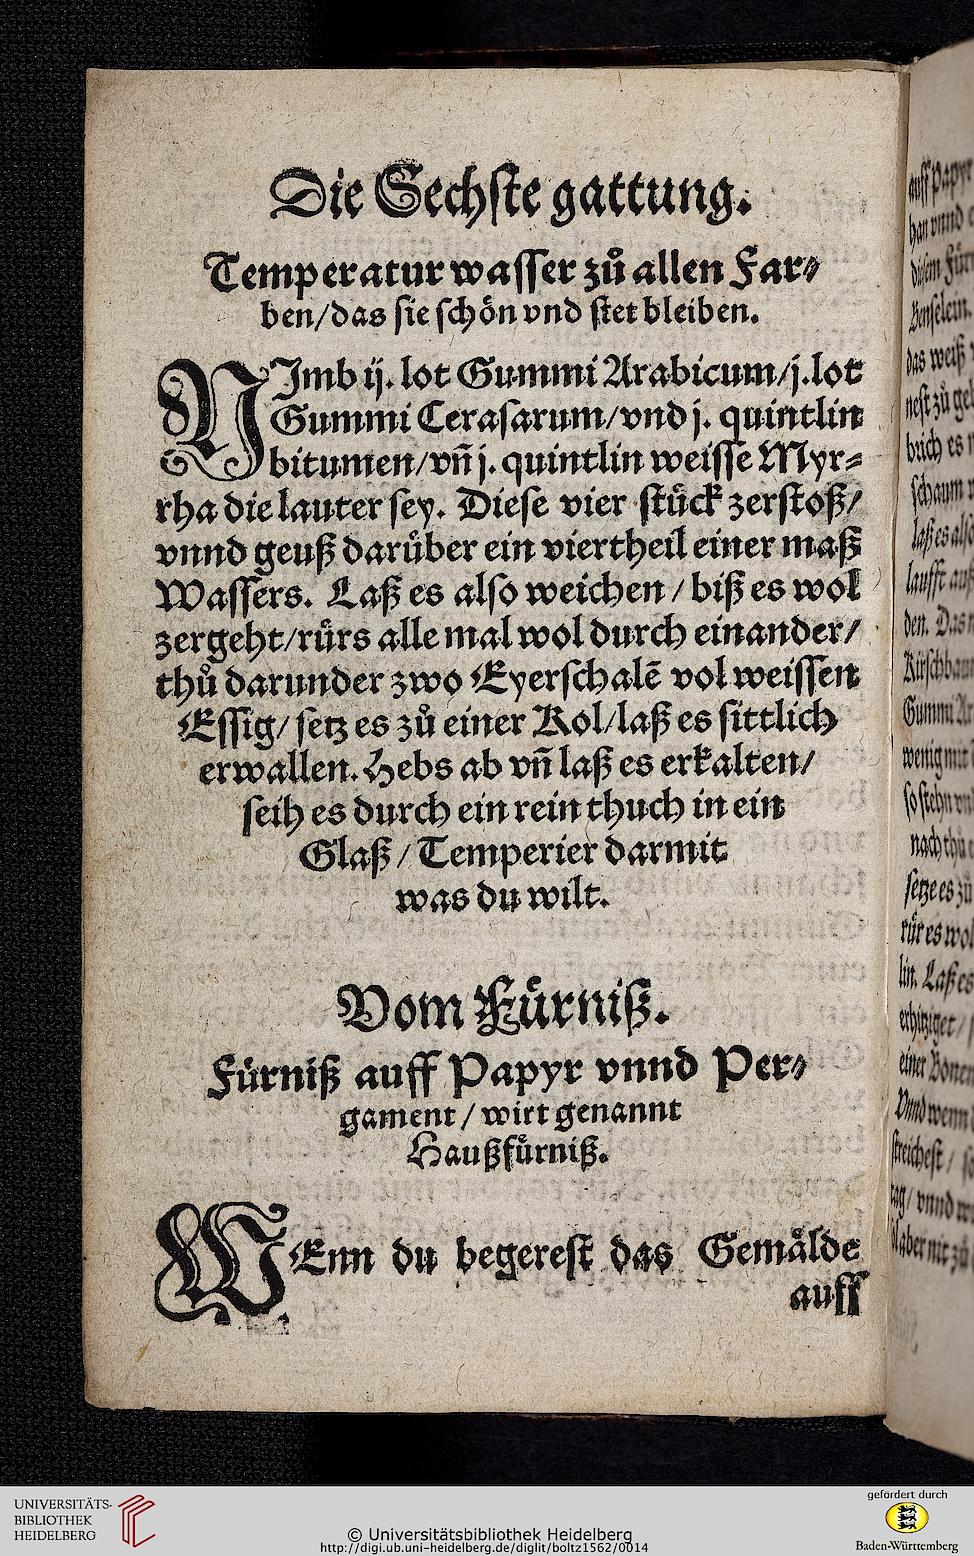 Die Sechste gattung.
Temperatur wasser zů allen Far⸗
ben/das sie schön vnd stet bleiben.
NJmb ij. lot Gummi Arabicum/j.lot
Gummi Cerasarum/vnd j. quintlin
bitumen/vñ j. quintlin weisse Myr⸗
rha die lauter sey. Diese vier stück zerstoß/
vnnd geuß darüber ein viertheil einer maß
Wassers. Laß es also weichen / biß es wol
zergeht/rürs alle mal wol durch einander/
thů darunder zwo Eyerschalẽ vol weissen
Essig/ setz es zů einer Kol/laß es sittlich
erwallen. Hebs ab vñ laß es erkalten/
seih es durch ein rein thuch in ein
Glaß / Temperier darmit
was du wilt.
Vom Fürniß.
Fürniß auff Papyr vnnd Per⸗
gament / wirt genannt
Haußfürniß.
WEnn du begerest das Gemälde
auff
auff Papyr
han vnnd
disem Für
Henselein.
das weiß
nest zů
bůch es
schaum
laß es also
laufft auß
den. Das
Kirschbaum
Gummi Ar
wenig mit
so stehn
nach thů
setze es zů
rür es wol
lin. Laß es
erhitziget/
einer Bonen
Vnnd wenn
streichest /
tag / vnnd
aber nit zů
UNIVERSITÄTS-
BIBLIOTHEK
HEIDELBERG
© Universitätsbibliothek Heidelberg
http://digi.ub.uni-heidelberg.de/diglit/boltz1562/0014
gefördert durch
Baden-Württemberg